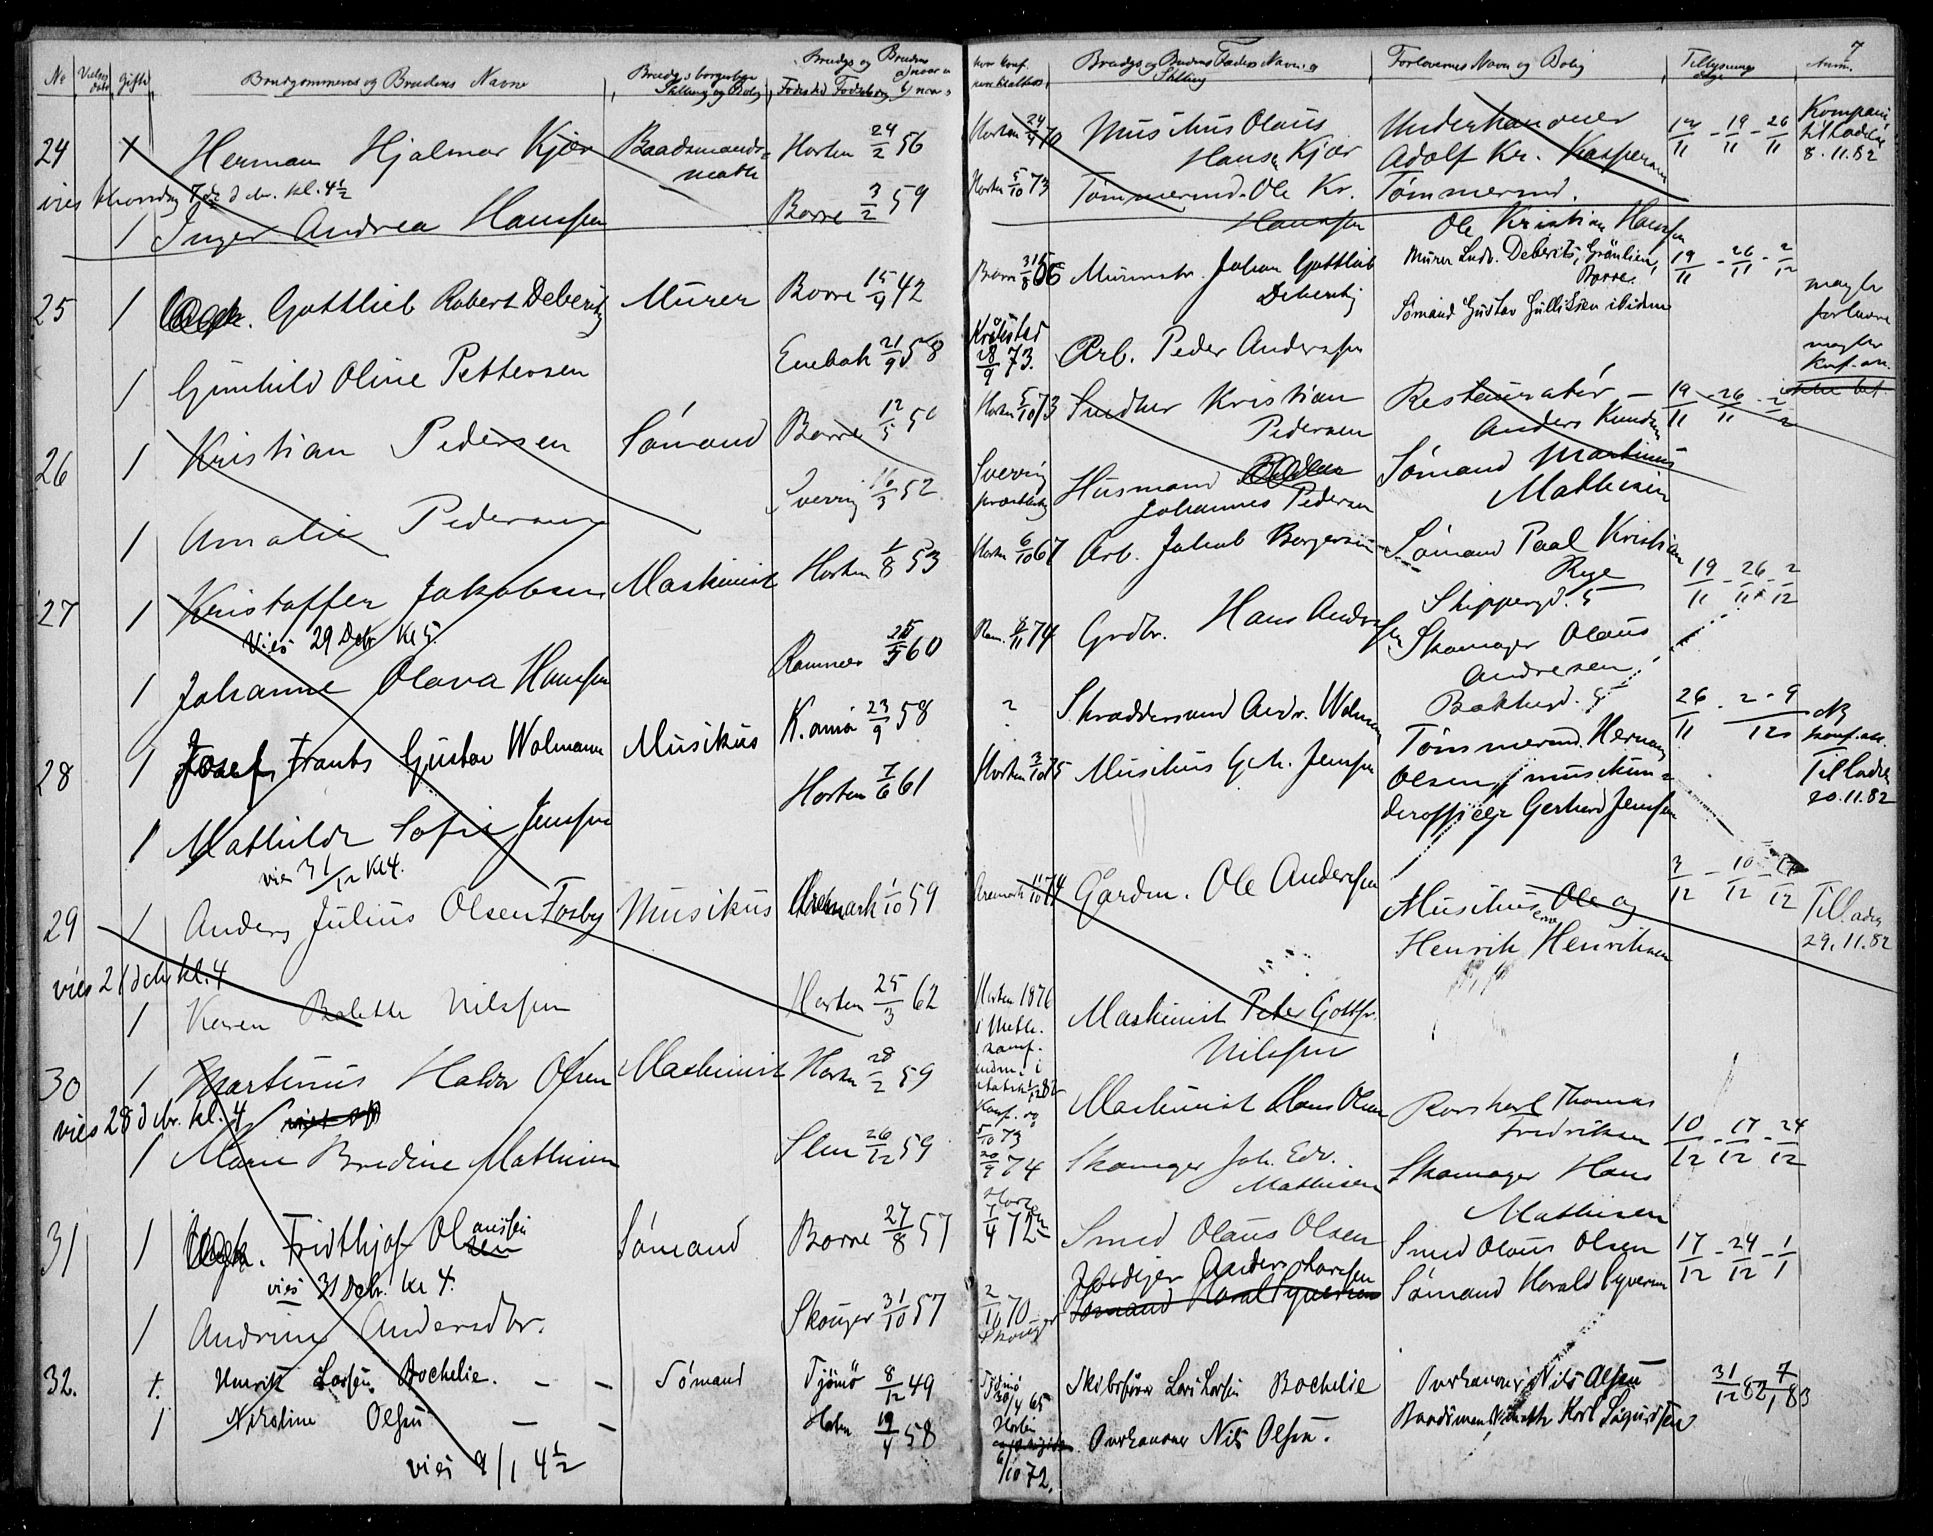 7
No Vielses dato Gifte Brudgommens og Brudens Navne Brudgs borgerlige Stilling og Bolig Brudgs og Brudens Fødested Fødselsdag Brudgs og Brudens Faders Navn og Stilling Forlovernes Navn og Bolig Tillysnings dage Anm.
24 1 Herman Hjalmar Kjær Baadsmandsmath Horten 24/2 56 Horten 24/9 70 Musikus Olaus Hansen Kjær Underkanoner Adolf Kr. Kaspersen 12/11 - 19/11 - 26/11 Kompani tilladelse 8.11.82
vies thorsdag 7de debr. kl. 4½
1 Inger Andrea Hanssen Borre 3/2 59 Horten 5/10 73 Tømmermd. Ole Kr. Hanssen Tømmermd. Ole Kristian Hanssen
25 1 Gottlieb Robert Deberitz Murer Borre 15/9 42 Borre 31/8 56 Murmstr. Johan Gottlieb Deberitz Murer Ludv. Deberitz, Grønlien, Borre. 19/11 - 26/11 - 2/12 magler forlovere
1 Gunhild Oline Pettersen Enebak 21/9 58 Kråkstad 28/9 73. Arb. Peder Anderssen Sømand Gustav Gulliksen ibidem magler konf. att.
26 1 Kristian Pedersen Sømand Borre 12/5 50 Horten 5/10 73 Snedker Kristian Pedersen Restauratør - Anders Knudsen 19/11 - 26/11 - 2/12
1 Amalie Pedersen Sverrig 16/3 52 Sverrig Husmand Johannes Pedersen Sømand Martinus Mathisen
27 1 Kristoffer Jakobsen Maskinist Horten 1/8 53 Horten 6/10 67 Arb. Jakob Borgersen Sømand Paal Kristian Rye Skippergd. 5 19/11 - 26/11 - 2/12
Vies 29 Debr. Kl 5.
1 Johanne Olava Hanssen Ramnes 60 Ram. 74 Grdbr. Hans Anderssen Skomager Olaus Andresen Bakkegd. 5
28 1 Josef Frants Gustav Wolmann Musikus K.ania 23/9 58 ? Skræddersvend Andr. Wolmann Tømmermd. Herman Olsen 26/11 - 2 - 9/12 konf. att.
1 Mathilde Sofie Jenssen Horten 7/6 61 Horten 3/10 75 Musikus G. M. Jenssen musikunderofficer Gerhard Jenssen Tilladen 20.11.82
vies 31/12 Kl 4.
29 1 Anders Julius Olsen Fosby Musikus Aremark 1/10 59 Aremark 11/10 74 Gardm. Ole Anderssen Musikus Ole og Henrik Henriksen 3/12 - 10/12 - 17/12 Tilladen 29.11.82
vies 21 debr kl. 4
1 Karen Bolette Nilssen Horten 25/3 62 Horten 1876 Maskinist Peter Gottfr. Nilssen
30 1 Martinus Haldor Olsen Maskinist Horten 28/2 59 Konf. og 5/10 73 Maskinist Hans Olsen Rorskarl Thomas Fredriksen 10/12 - 17/12 - 24/12
vies 28 debr. kl. 4
1 Marie Bredine Mathisen Slem 26/12 59 20/9 74 Skomager Joh. Edv. Mathisen Skomager Hans Mathisen
31 1 Fridthjof Olaussen Sømand Borre 27/8 57 7/4 72 Smed Olaus Olsen Smed Olaus Olsen 17/12 - 24/12 - 1/1
vies 31 Debr. kl 4.
1 Andrine Andersdtr. Skouger 31/10 57 2/10 70 Skouger Anders Larssen Sømand Harald Syversen
32. 1. Henrik Larsen Bochelie. - - Sømand Tjømø 8/12 49 Tjømø 30/4 65 Skibsfører Lars Larsen Bochelie Overkanoner Nils Olsen 31/12 82 7/1 83
1 Nikoline Olsen - - Horten 19/4 58 Horten 6/10 72. Overkanoner Nils Olsen. Baadsmandsmath Karl Sigurdsen
vies 9/1 4½